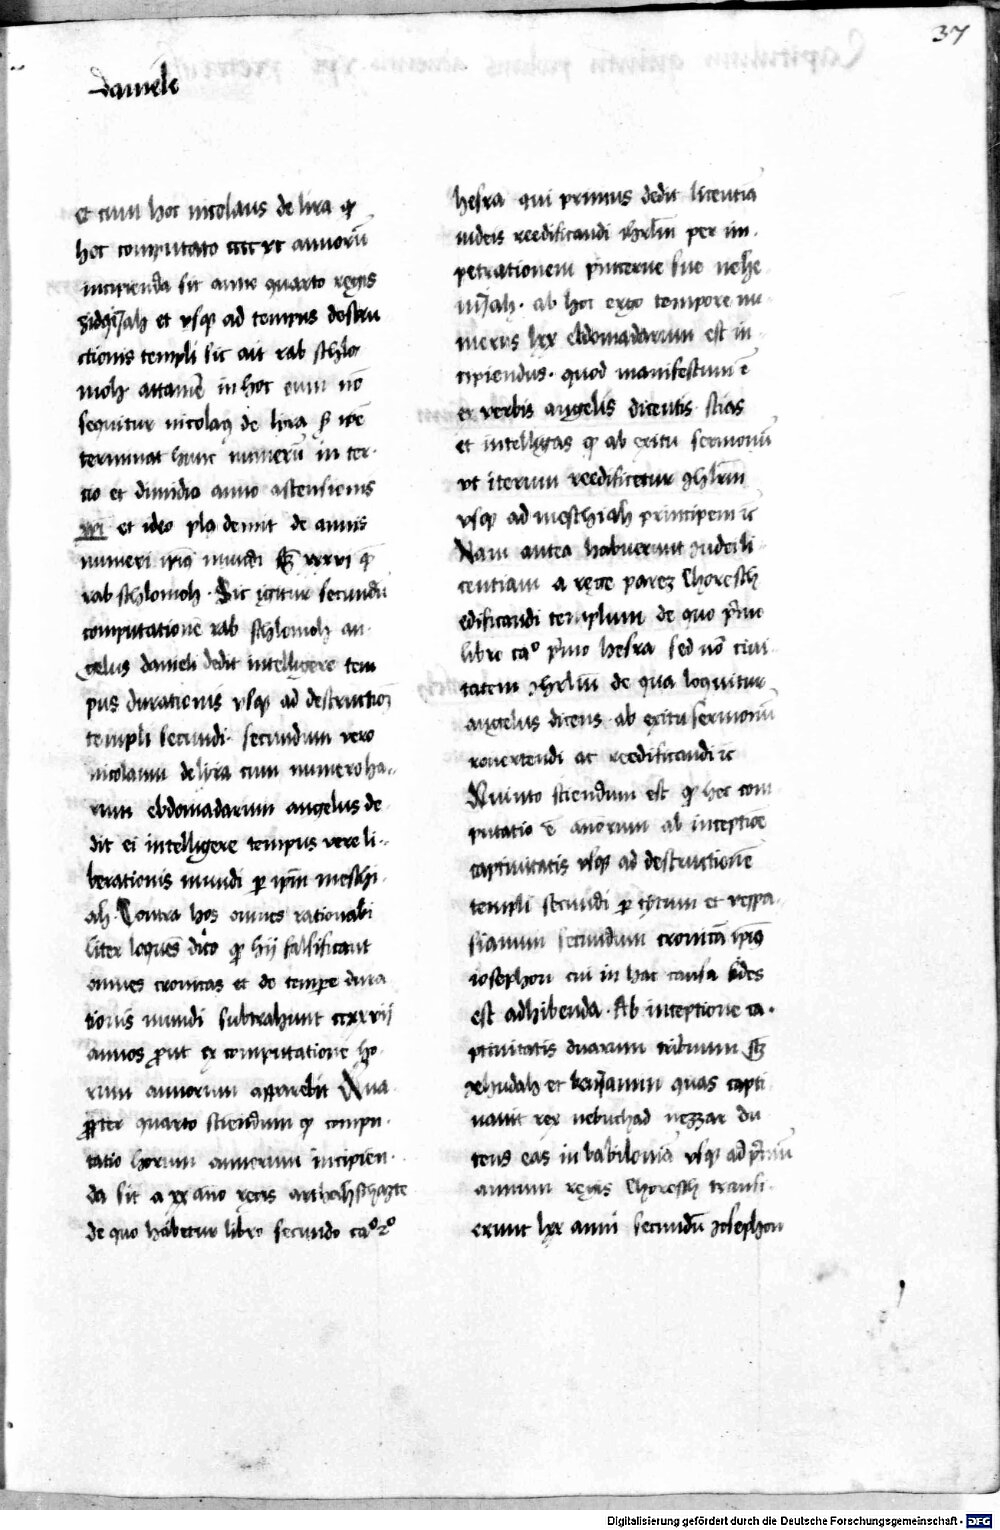 37
Daniele
Et cum hoc nicolaus de lira qꝫ
hoc computato ccccxc annorū
incipienda sit anno quarto regis
zidqijah et vsqꝫ ad tempus destru
ctionis templi sic ait rab schlo
moh attamē in hoc eum nō
sequitur nicolaꝰ de lyra
terminat hunc numerū in ter-
cio et dimidio anno ascensionis
xpi et ideo demit de annis
numeri mundi xxxvi
rab schlomoh. Sic igitur secundū
computationē rab schlomoh an-
gelus danieli dedit intelligere tem
pus durationis vsqꝫ ad destructiōꝫ
templi secundi. secundum vero
nicolaum de lyra cum numero ha-
rum ebdomadarum angelus de-
dit ei intelligere tempus vere li-
berationis mundi ꝑ ip̄m meschi-
ah. Contra hos omnes rationabi
liter loquēs dico qꝫ hij falsificant
omnes cronicas et de tempore dura
tionis mundi subtrahunt ccxxvij
annos ꝓut ex computatione ho-
rum annorum apparebit Qua
ꝓpter quarto sciendum qꝫ compu-
tatio horum annorum incipien-
da sit a xx año regis arthahschaste
de quo habetur libro secundo ca° 2°
hesra qui primus dedit licentiā
iudeis reedificandi ihrlm̄ per im-
petrationem pincerne sue nehe
mijah. ab hoc ergo tempore nu-
merus lxx ebdomadarum est in-
cipiendus. quod manifestum ē
ex verbis angelis dicentis scias
et intelligas qꝫ ab exitu sermonū
vt iterum reedificetur ihrlm̄
vsqꝫ ad meschiah principem ꝛc
Nam antea habuerunt iudei li-
centiam a rege parez Choresch
edificandi templum de quo p̄mo
libro ca° p̄mo hesra sed nō ciui-
tatem ihrlm̄ de qua loquitur
angelus dicens ab exitu sermonū
reuertendi ac reedificandi ꝛc
Quinto sciendum est qꝫ hec com
putatio ē annorum ab inceptiōe
captiuitatis vsqꝫ ad destructionē
templi secundi ꝑ tytum et vespa-
sianum secundum cronicā ip̄iꝰ
iosephon cui in hac causa fides
est adhibenda. Ab inceptione ca-
ptiuitatis duarum tribuum sꝫ
jehudah et benjamin quas capti
uauit rex nebuchad nezzar du
cens eas in babiloniā vsqꝫ ad p̄mū
annum regis Choresch transi-
erunt lxx anni secundū iosephon
Digitalisierung gefördert durch die Deutsche Forschungsgemeinschaft - DFG